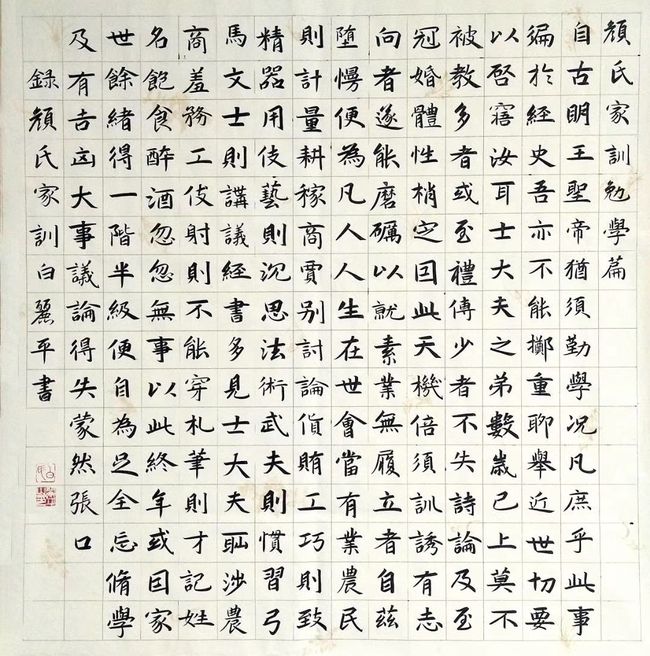 顏氏家訓勉學篇
自古明王聖帝猶須勤學況凡庶乎此事
徧於經史吾亦不能擲重聊舉近世切要
以啓寤汝耳士大夫之弟數歲已上莫不
被教多者或至禮傳少者不失詩論及至
冠婚體性梢定因此天機倍須訓誘有志
向者遂能磨礪以就素業無履立者自茲
墮慢便為凡人人生在世會當有業農民
則計量耕稼商賈別討論貨賄工巧則致
精器用伎藝則沉思法術武夫則慣習弓
馬文士則講議經書多見士大夫恥涉農
商羞務工伎射則不能穿札筆則才記姓
名飽食醉酒忽忽無事以此終年或因家
世餘緒得一階半級便自為足全忘脩學
及有吉凶大事議論得失蒙然張口
錄顏氏家訓白麗平書